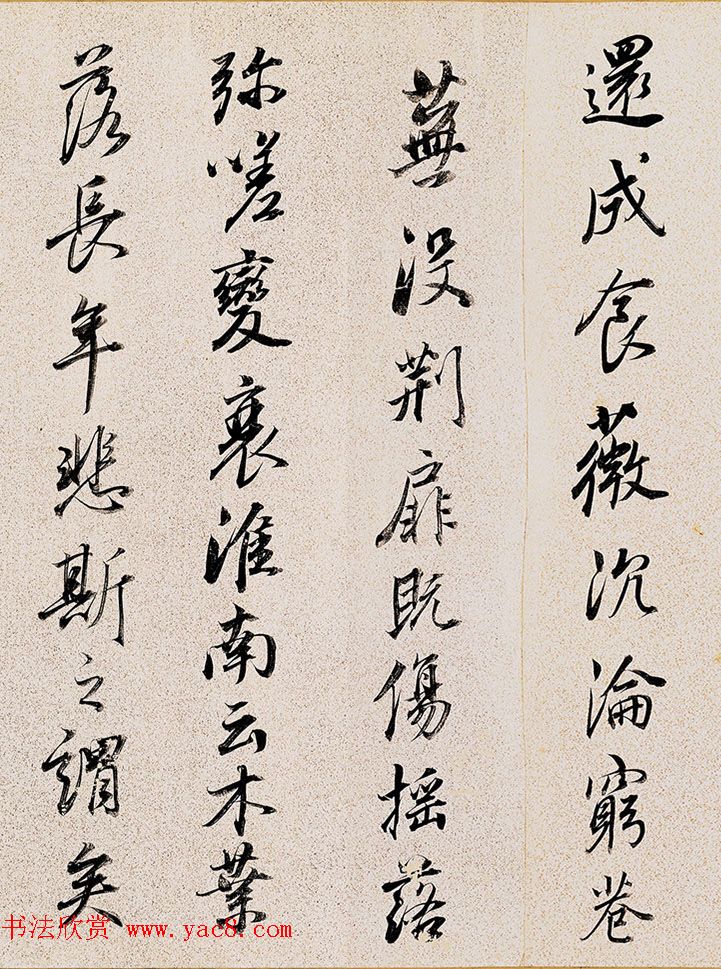 還成食薇沉淪窮巷
蕪没荆扉既傷搖落
弥嗟變衰淮南云木葉
落長年悲斯之謂矣
书法欣赏 www.yac8.com